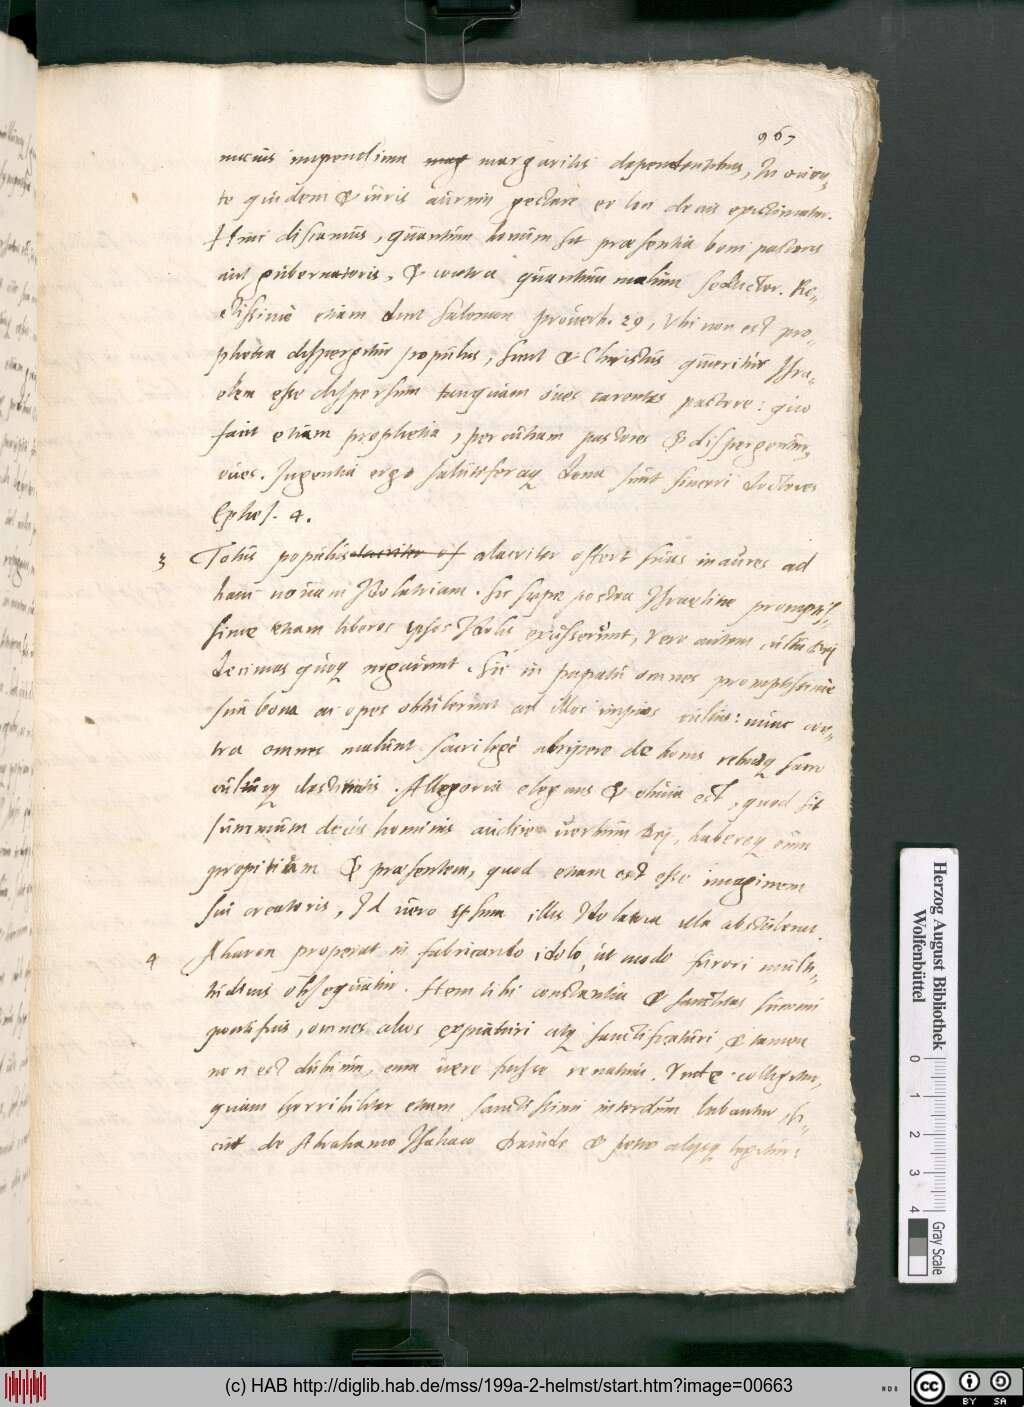 967
margaritis dependentibus, In orien„
te quidem & viris aureum pectore
Hinc discamus, quantum bonum sit præsentia boni pastoris
aut gubernatoris, & contra quantum malum seductor. Re„
ctissime etiam dixit Salomon Proverb. 29, Vbi non est pro„
phetia dispergitur populus, sicut & Christus queritur Isra„
elem esse dispersum tanquam oves carentes pastore: quo
facit etiam prophetia, percutiam pastores & dispergentur
oves. Ingentia ergo salutiferaq dona sunt sinceri doctores
Ephes. 4.
3 Totus populus alacriter offert suas inaures ad
hanc novam Idolatriam. Sic sæpe postea Israelitæ promptis„
sime etiam liberos ipsos Idolis vero autem cultui Dei
decimas quoq negarunt. Sic in papatu omnes promptissime
sua bona ac opes obtulerunt ad illos impios cultus: nunc con„
tra omnes malunt sacrilegè abripere de bonis rebusq sacro
cultui destinatis. Allegoria elegans & etiam est, quod sit
summum decus hominis audire verbum Dei, habereq eum
propitium & præsentem, quod etiam est esse imaginem
sui creatoris, Id vero ipsum illis Idolatria illa abstulerat.
4 Aharon properat in fabricando idolo, ut modo furori multi„
tudinis obsequatur. Item ubi constantia & sanctitas summi
pontificis, omnes alios expiaturi atq sanctificaturi, & tamen
non est dubium, eum vere fuisse renatum. Vnde colligitur,
quam horribiliter etiam sanctissimi interdum labantur, si„
cut de Abrahamo Isahaco Davide & Petro alijsq legitur:
(c) HAB http://diglib.hab.de/mss/199a-2-helmst/start.htm?image=00663
Herzog August Bibliothek
Wolfenbüttel
0 1 2 3 4
Gray Scale
cc BY SA